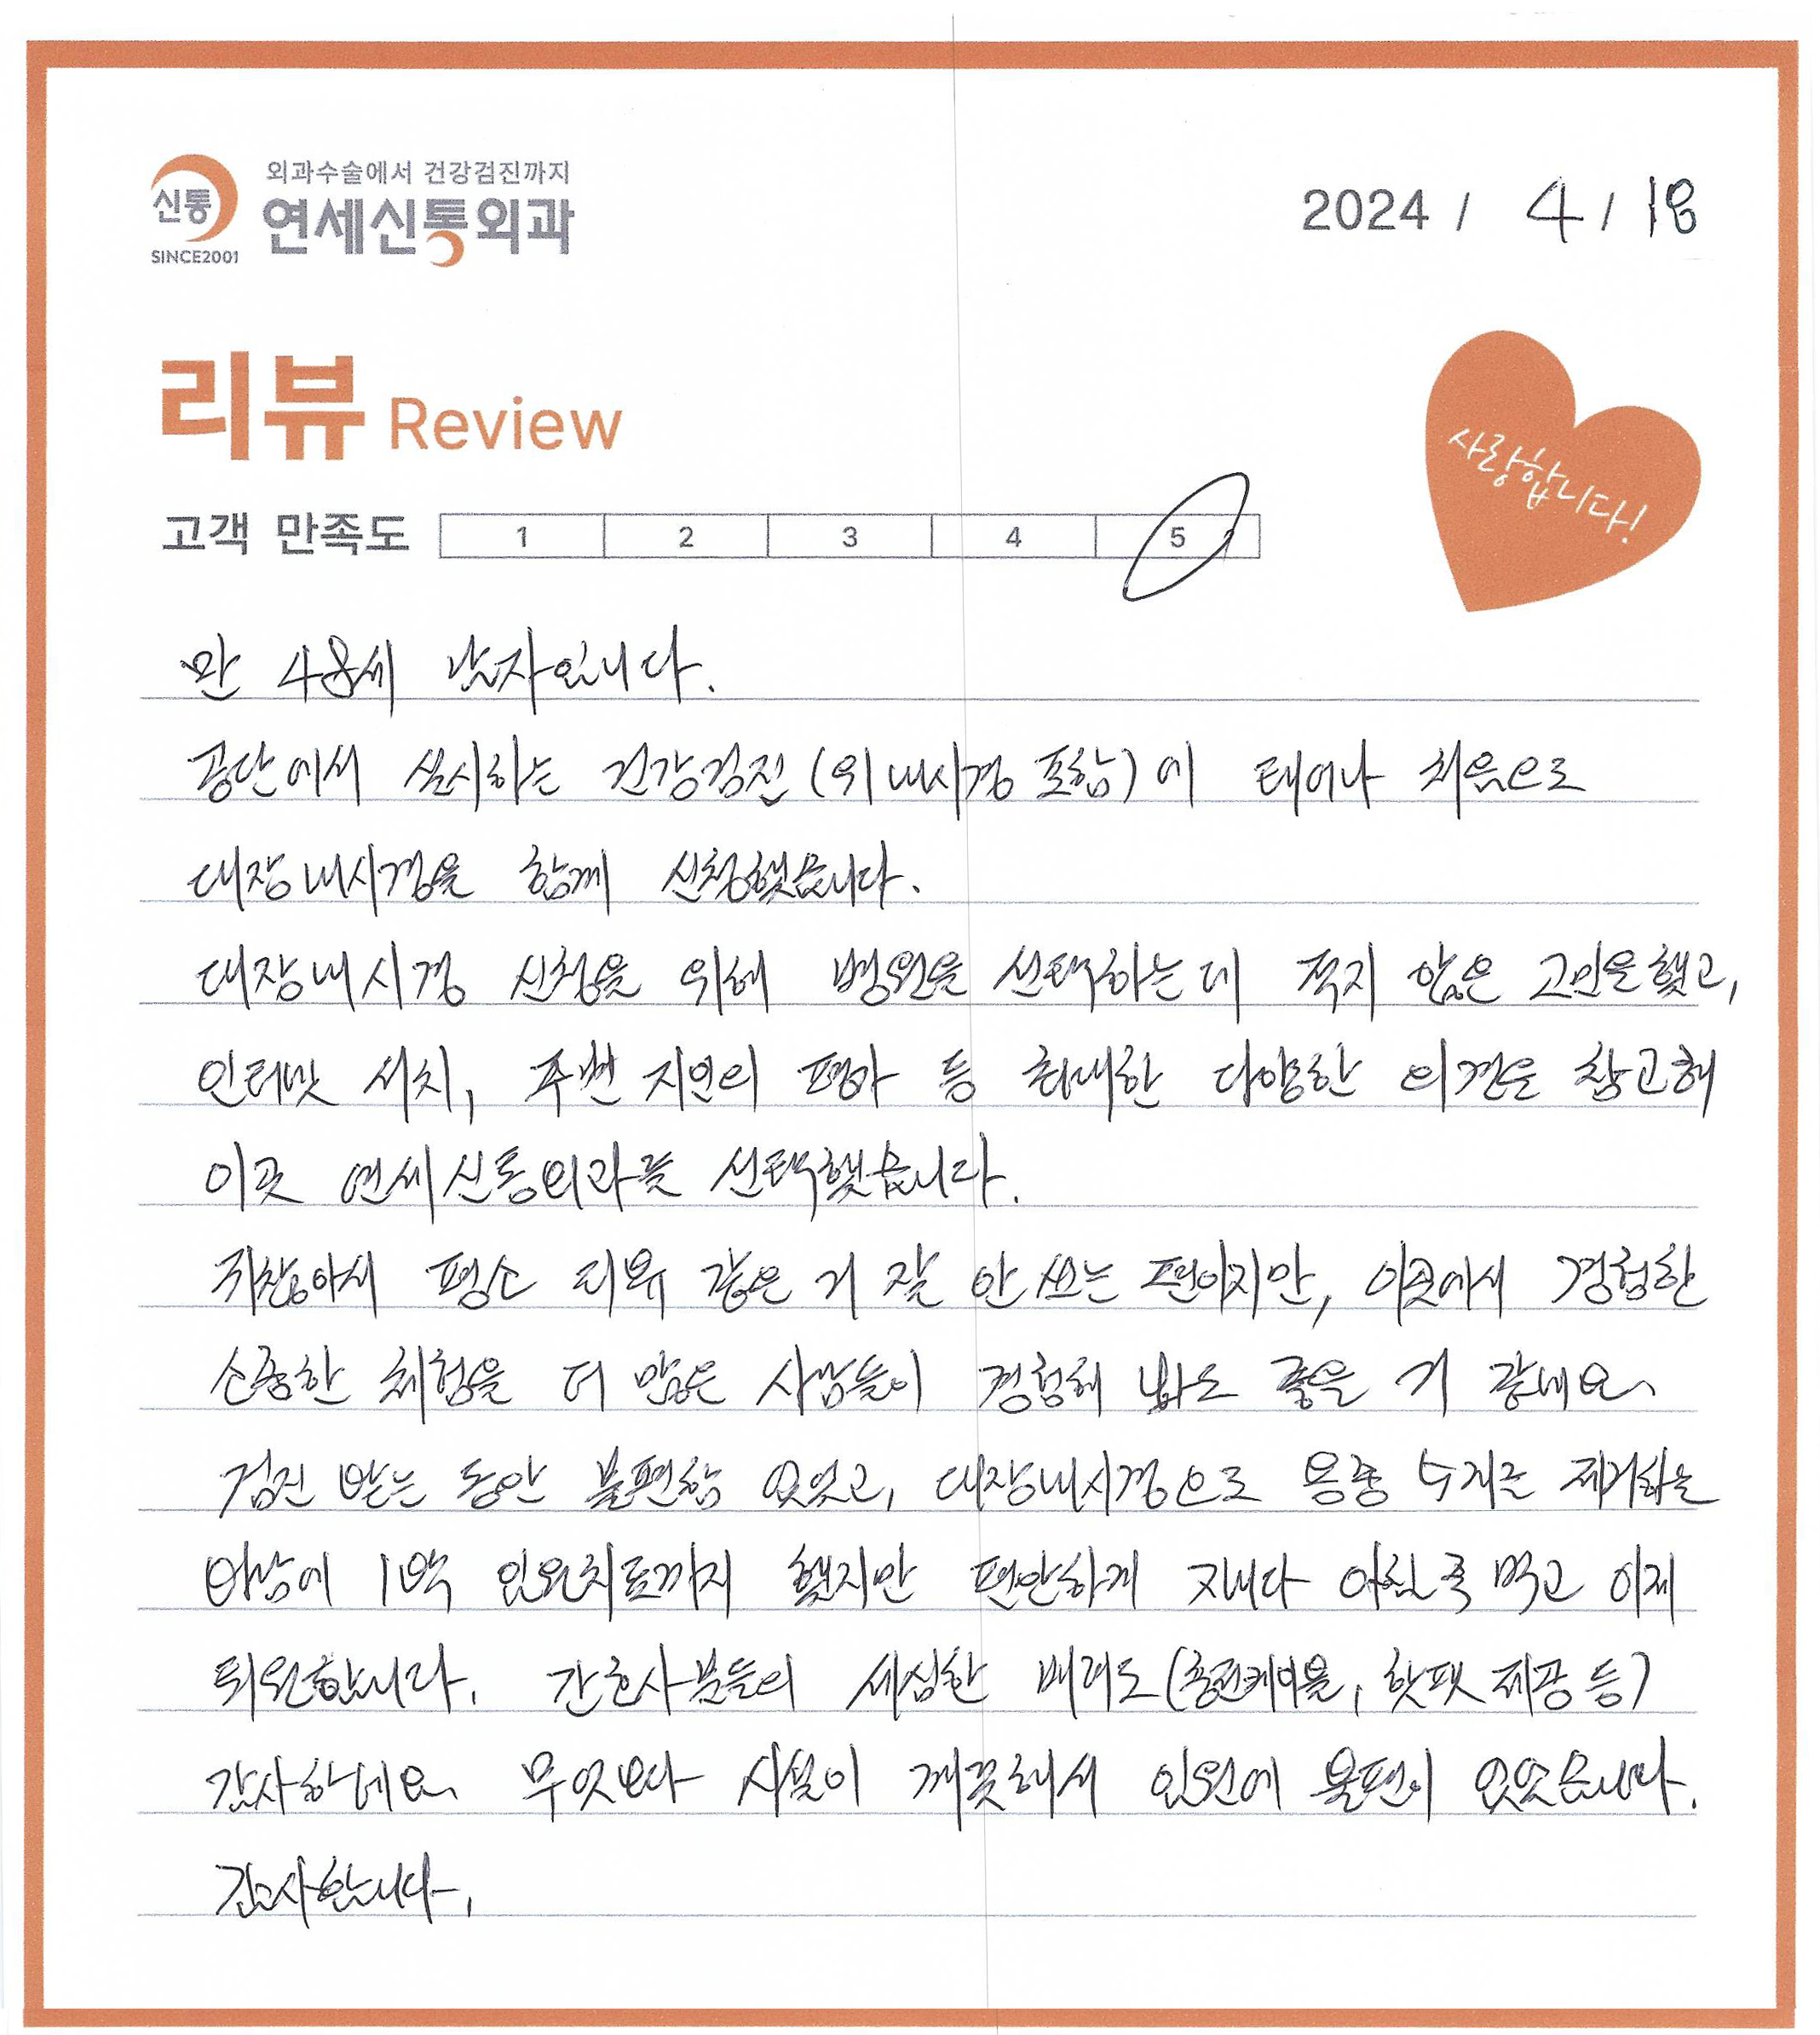 외과수술에서 건강검진까지
신통 연세신통외과
SINCE2001
2024 / 4 / 18
리뷰 Review
사랑합니다!
고객 만족도 1 2 3 4 5
만 48세 남자입니다.
공단에서 실시하는 건강검진(위내시경 포함)에 태어나 처음으로
대장내시경을 함께 신청했습니다.
대장내시경 신청을 위해 병원을 선택하는데 적지 않은 고민을 했고,
인터넷 서치, 주변 지인의 평가 등 최대한 다양한 의견을 참고해
이곳 연세신통외과를 선택했습니다.
귀찮아서 평소 리뷰 같은 거 잘 안 쓰는 편이지만, 이곳에서 경험한
소중한 체험을 더 많은 사람들이 경험해 봐도 좋을 거 같네요.
검진 받는 동안 불편함 없었고, 대장내시경으로 용종 5개를 제거하는
바람에 1박 입원치료까지 했지만 편안하게 지내다 아침 죽 먹고 이제
퇴원합니다. 간호사분들의 세심한 배려도(충전케이블, 핫팻 제공 등)
감사하네요. 무엇보다 시설이 깨끗해서 입원에 불편이 없었습니다.
감사합니다.